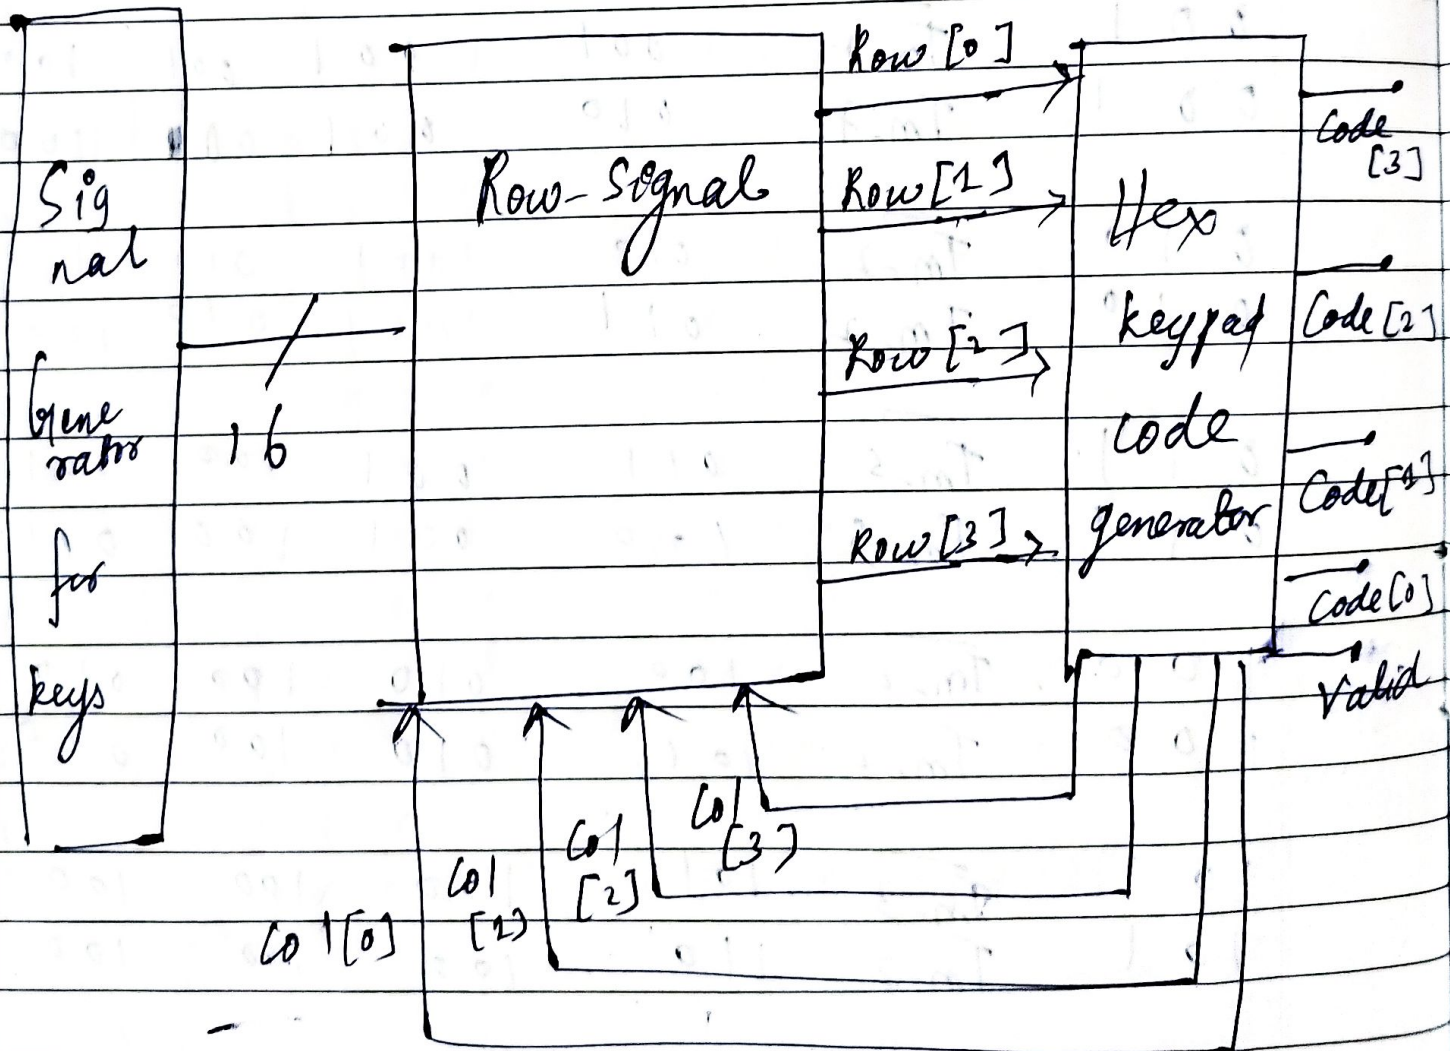 Sig
nal
Gene
rator
for
keys
16
Row-Signal
Row [0]
Row [1]
Row [2]
Row [3]
Hex
keypad
code
generator
Code
[3]
Code [2]
Code[1]
Code[0]
Valid
Col[0]
Col
[1]
Col
[2]
Col
[3]